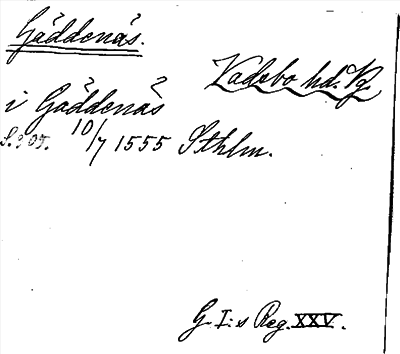 Gäddenäs.
Vadsbo hd. Vg.
i Gäddenäs
10/7 1555 Sthlm.
G. I:s Reg. XXV.